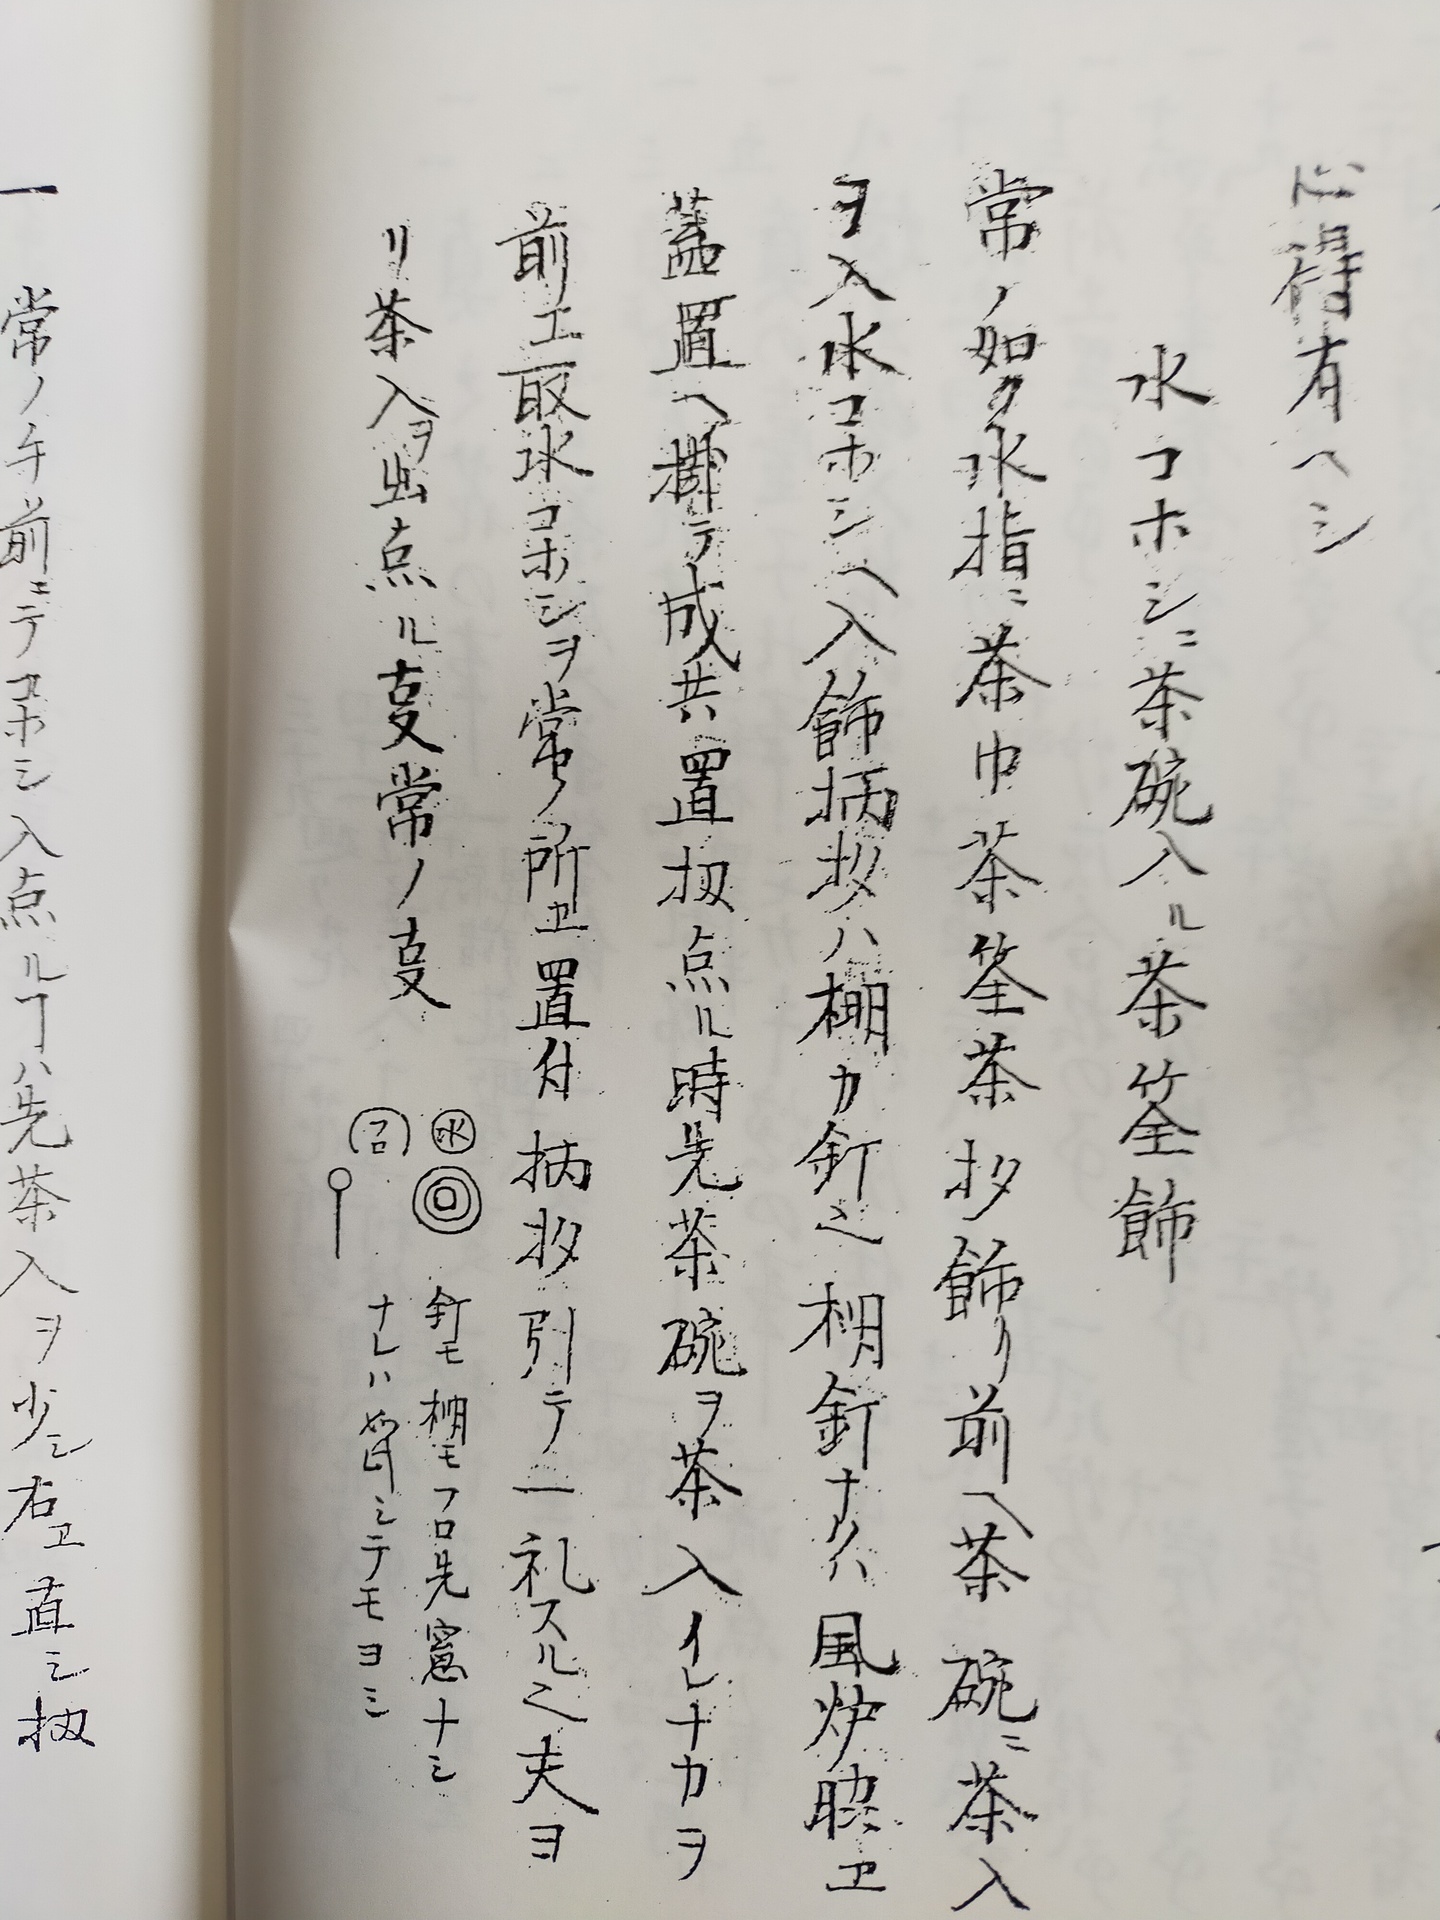 心得有ヘシ
水コホシニ茶碗入ル茶筌飾
常ノ如ク水指ニ茶巾茶筌茶抄飾リ前ヘ茶碗ニ茶入
ヲ入水コホシヘ入飾柄抄ハ棚カ釘之棚釘ナクハ風炉脇ヱ
蓋置ヘ掛テ成共置扨点ル時先茶碗ヲ茶入イレナカヲ
前エ取水コホシヲ常ノ所ヱ置付柄抄引テ一礼スル之夫ヨ
リ茶入ヲ出点ル叓常ノ叓
水
釘モ棚モフロ先窓ナシ
ナレハ如此シテモヨシ
一 常ノ午前ニテコホシ入点ルヿハ先茶入ヲ少シ右ヱ直シ扨